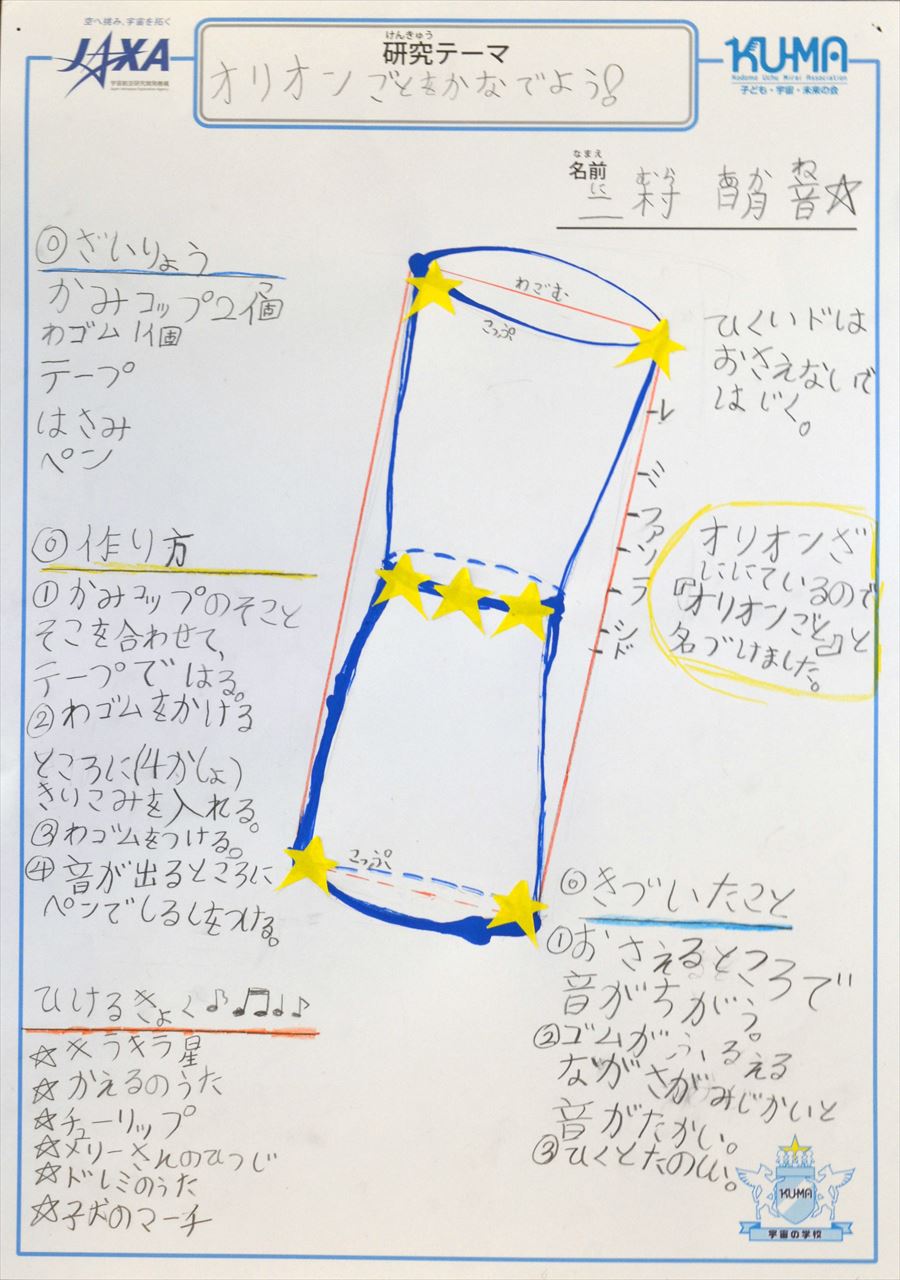 空へ挑み、宇宙を拓く
JAXA
宇宙航空研究開発機構
けんきゅう
研究テーマ
オリオンごとをかなでよう!
KU-MA
Kodomo Uchu Mirai Association
子ども・宇宙・未来の会
なまえ
名前
に むら か ね
二村 萌音☆
◎ざいりょう
かみコップ2個
わゴム1個
テープ
はさみ
ペン
◎作り方
①かみコップのそこと
そこを合わせて、
テープではる。
②わゴムをかける
ところに(4かしょ)
きりこみを入れる。
③わゴムをつける。
④音が出るところに
ペンでしるしをつける。
ひけるきょく
☆キラキラ星
☆かえるのうた
☆チューリップ
☆メリーさんのひつじ
☆ドレミのうた
☆子犬のマーチ
わごむ
こっぷ
レ
ミ
ファ
ソ
ラ
シ
ド
こっぷ
ひくいドは
おさえないで
はじく。
オリオンざ
ににているので
『オリオンごと』と
名づけました。
◎きづいたこと
①おさえるところで
音がちがう。
②ゴムがふるえる
ながさがみじかいと
音がたかい。
③ひくとたのしい。
KU-MA
宇宙の学校